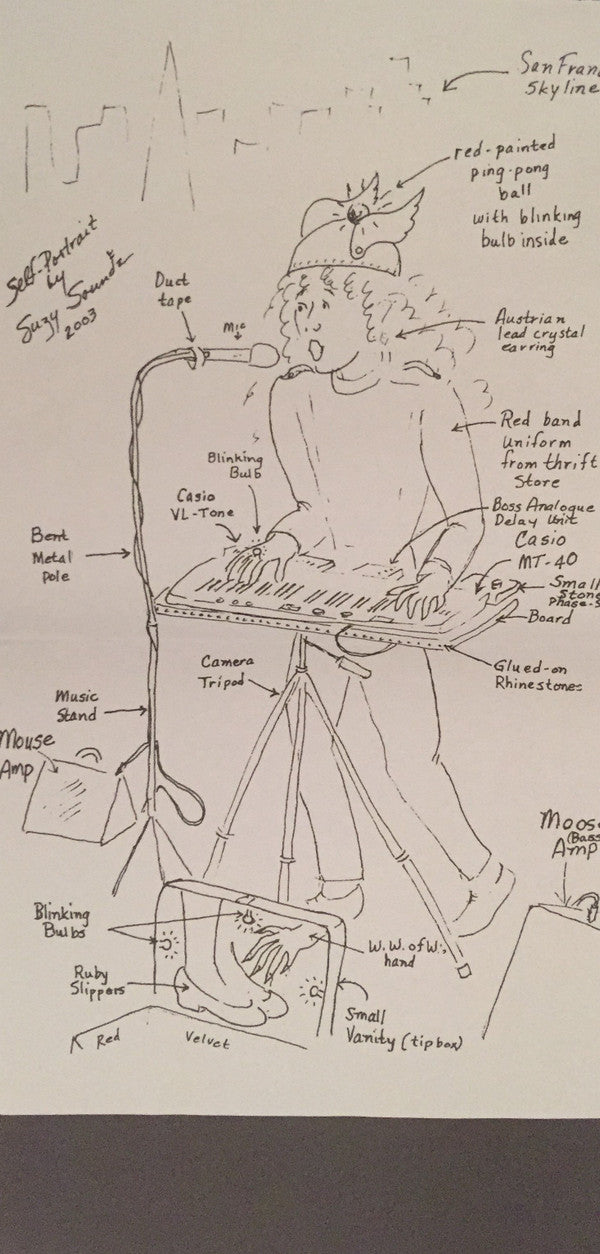 San Fran
Skyline
red-painted
ping-pong
ball
with blinking
bulb inside
Self-Portrait
by
Suzy Soundz
2003
Duct
tape
Mic
Austrian
lead crystal
earring
Red band
Uniform
from thrift
Store
Blinking
Bulb
Casio
VL-Tone
Boss Analogue
Delay Unit
Casio
MT-40
Small
Stone
Phase-S
Board
Bent
Metal
Pole
Glued-on
Rhinestones
Camera
Tripod
Music
Stand
Mouse
Amp
Moos
(Bass
Amp
Blinking
Bulbs
W.W. of W.'s
hand
Ruby
Slippers
Small
Vanity (tipbox)
Red Velvet